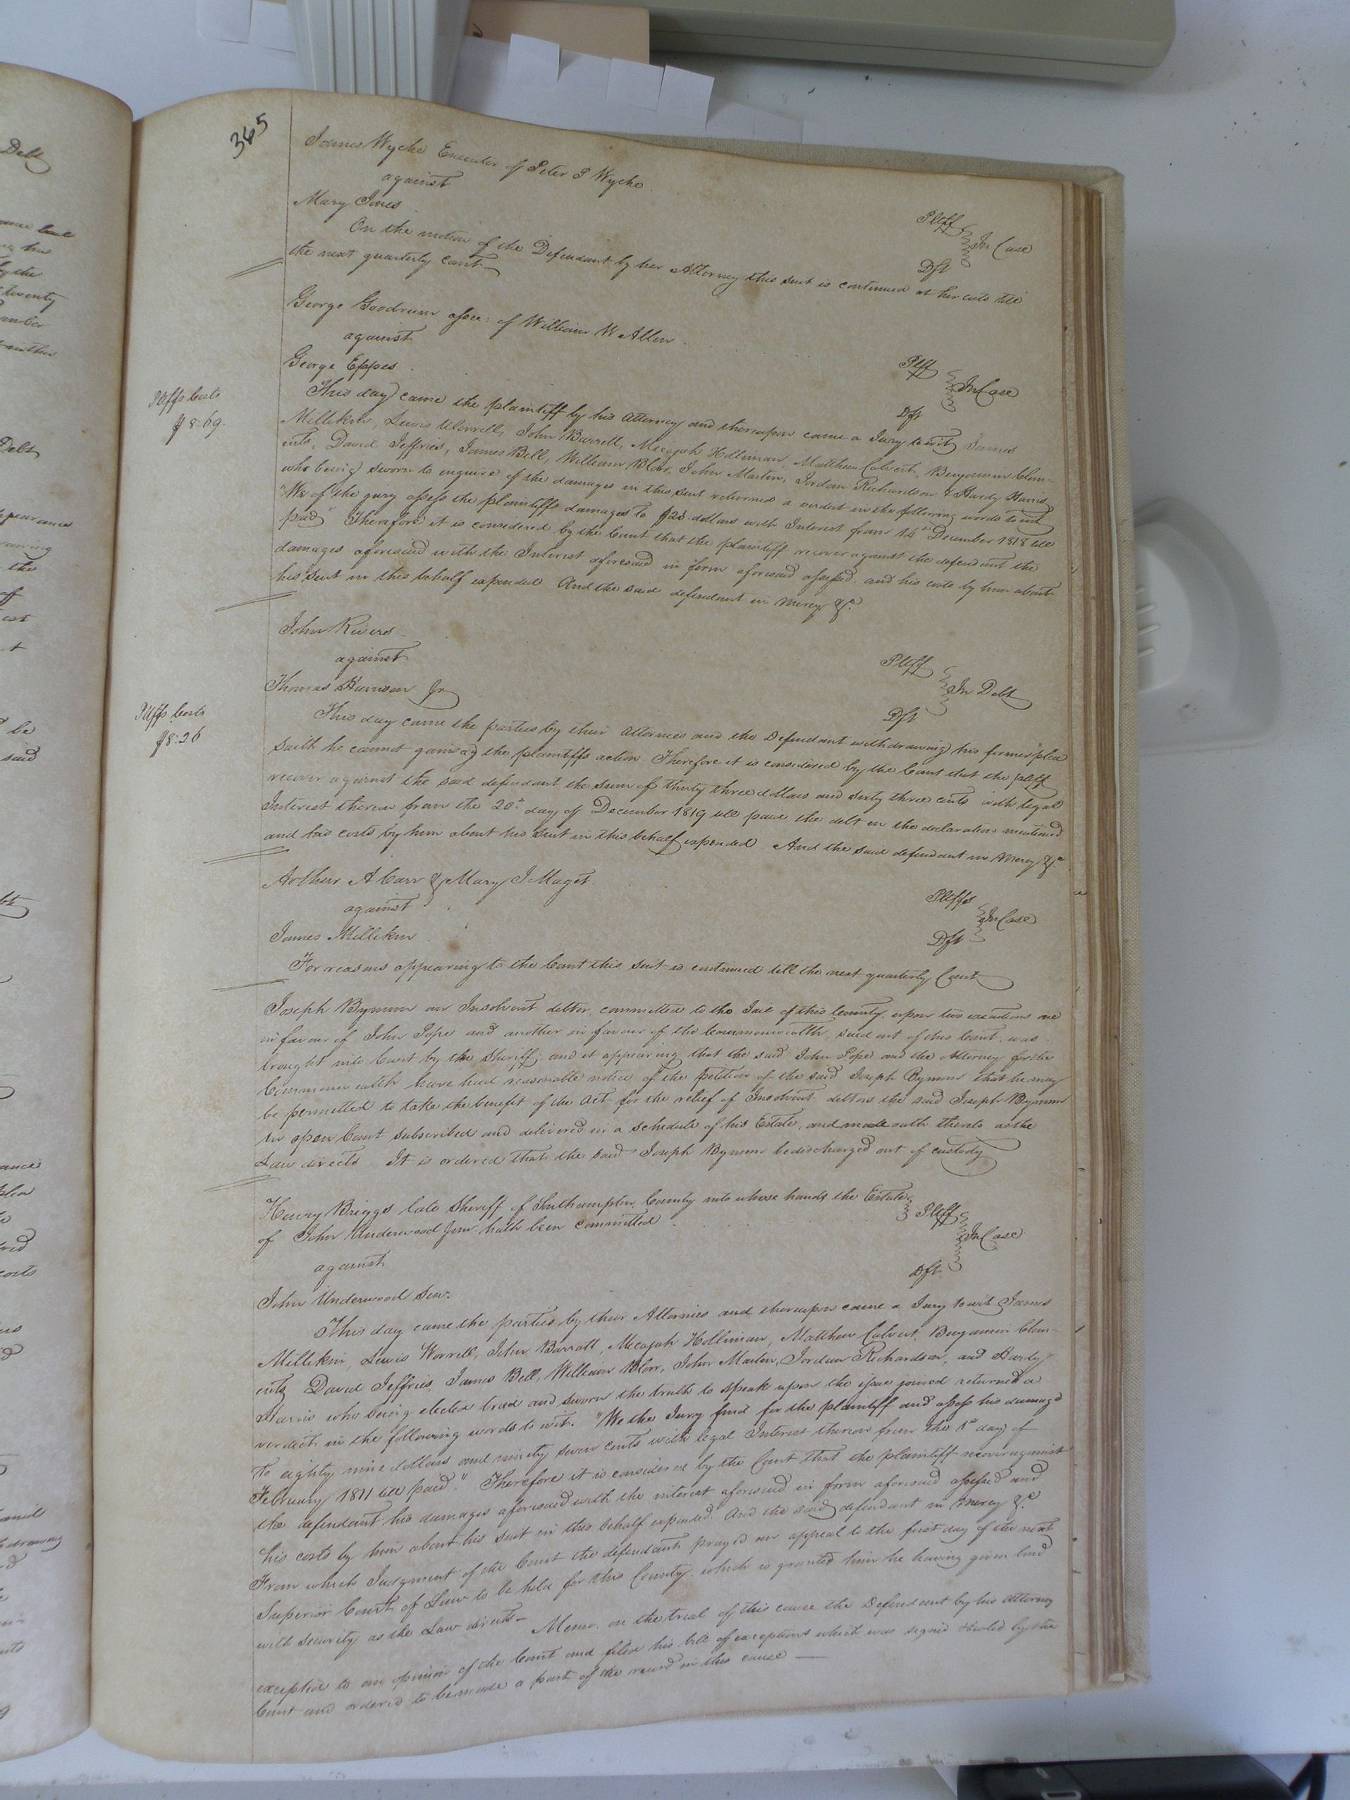 365
James Wyche Executor of Peter P Wyche Pltff
against In Case
Mary Jones Dft
On the motion of the Defendant by her Attorney this suit is continued at her costs till
the next quarterly court
George Goodrum assee: of William W Allen Pltff
against In Case
George Eppes Dft
Pltffs Costs
$8.69.
This day came the plaintiff by his attorney and thereupon came a Jury to wit James
Millikin, Lewis Worrell, John Barrett, Micajah Holliman, Matthew Calvert, Benjamin Clem-
ents, David Jeffries, James Bell, William Blow, John Masten, Jordan Richardson & Hardy Harris
who being sworn to enquire of the damages in this suit returned a verdict in the following words to wit
"We of the jury assess the plaintiffs damages to dollars with Interest from 14th December 1818 till
paid" Therefore it is considered by the Court that the plaintiff recover against the defendant the
damages aforesaid with the Interest aforesaid in form aforesaid assessed and his costs by him about
his suit in this behalf expended And the said defendant in Mercy &c.
John Rivers Pltff
against In Debt
Thomas Harrison Jr Dft
Pltffs Costs
$8.26
This day came the parties by their Attornies and the Defendant withdrawing his former plea
saith he cannot gainsay the plaintiffs action Therefore it is considered by the Court that the pltff
recover against the said defendant the sum of thirty three dollars and sixty three cents with legal
Interest thereon from the 20th day of December 1819 till paid the debt in the declaration mentioned
and his costs by him about his suit in this behalf expended And the said defendant in Mercy &c
Arthur A Carr & Mary J Maget Pltffs
against In Case
James Millikin Dft
For reasons appearing to the Court this suit is continued till the next quarterly Court
Joseph Bynum an Insolvent debtor, committed to the Jail of this County upon two executions one
in favour of John Pope and another in favour of the Commonwealth, sued out of this Court, was
brought into Court by the Sheriff; and it appearing that the said John Pope and the Attorney for the
Commonwealth have had reasonable notice of the petition of the said Joseph Bynum that he may
be permitted to take the benefit of the Act, for the relief of Insolvent debtors the said Joseph Bynum
in open Court subscribed and delivered in a schedule of his Estate, and made oath thereto as the
Law directs It is ordered that the said Joseph Bynum be discharged out of custody
Henry Briggs late Sheriff of Southampton County into whose hands the Estate Pltff
of John Underwood Junr hath been committed In Case
against
John Underwood Senr. Dft.
This day came the parties by their Attornies and thereupon came a Jury to wit James
Millikin, Lewis Worrell, John Barrott, Micajah Holliman, Matthew Calvert, Benjamin Clem-
ents, David Jeffries, James Bell, William Blow, John Masten, Jordan Richardson, and Hardy
Harris who being elected tried and sworn the truth to speak upon the issue joined returned a
verdict in the following words to wit. "We the Jury find for the plaintiff and assess his damages
to eighty nine dollars and ninety seven cents with legal Interest thereon from the 1st day of
February 1811 till paid." Therefore it is considered by the Court that the plaintiff recover against
the defendant his damages aforesaid with the interest aforesaid in form aforesaid assessed and
his costs by him about his suit in this behalf expended. And the said defendant in Mercy &c
From which Judgment of the Court the defendant prayed an appeal to the first day of the next
Superior Court of Law to be held for this County, which is granted him he having given bond
with security as the Law directs— Memo. on the trial of this cause the Defendant by his attorney
excepted to an opinion of the Court and filed his bill of exceptions which was signed & sealed by the
Court and ordered to be made a part of the record in this cause —